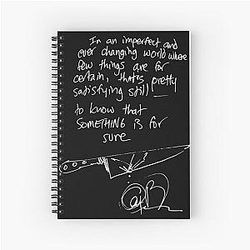 In an imperfect and
ever changing world where
few things are for
certain, that's pretty
satisfying still
to know that
SOMETHING IS for
sure